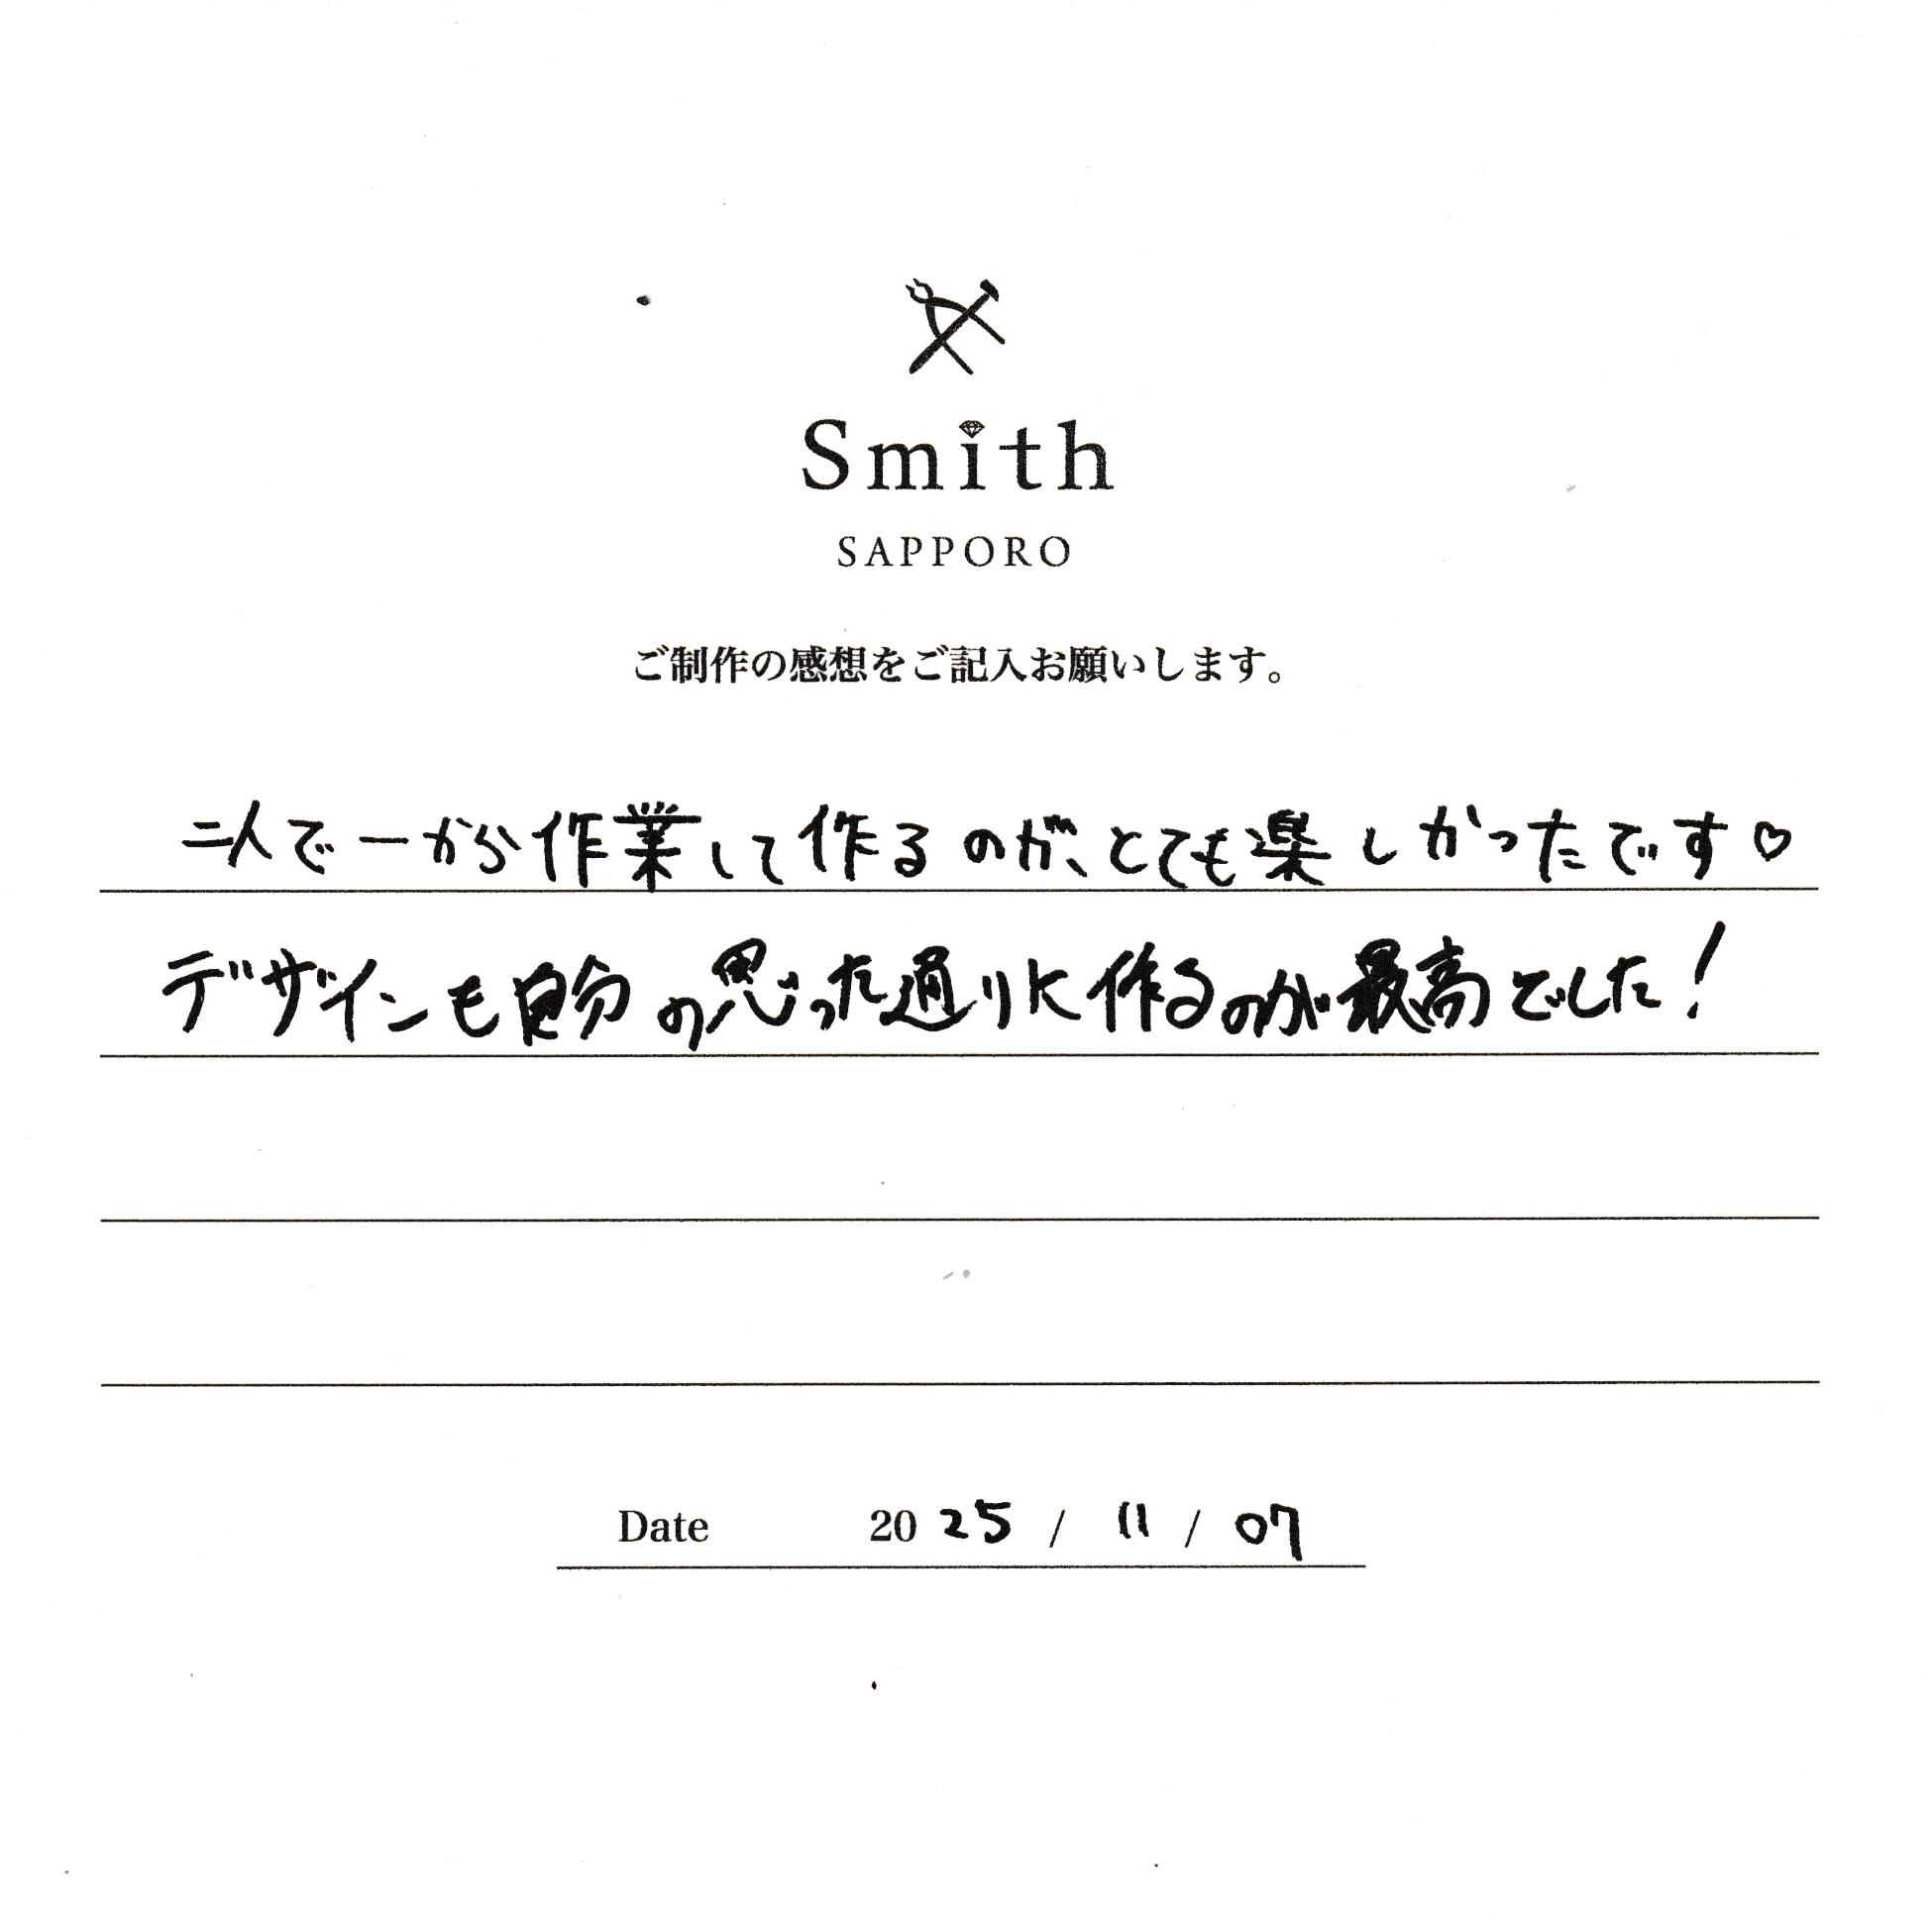 Smith
SAPPORO
ご制作の感想をご記入お願いします。
二人で一から作業して作るのが、とても楽しかったです♡
デザインも自分の思った通りに作るのが最高でした！
Date 2025 / 11 / 07